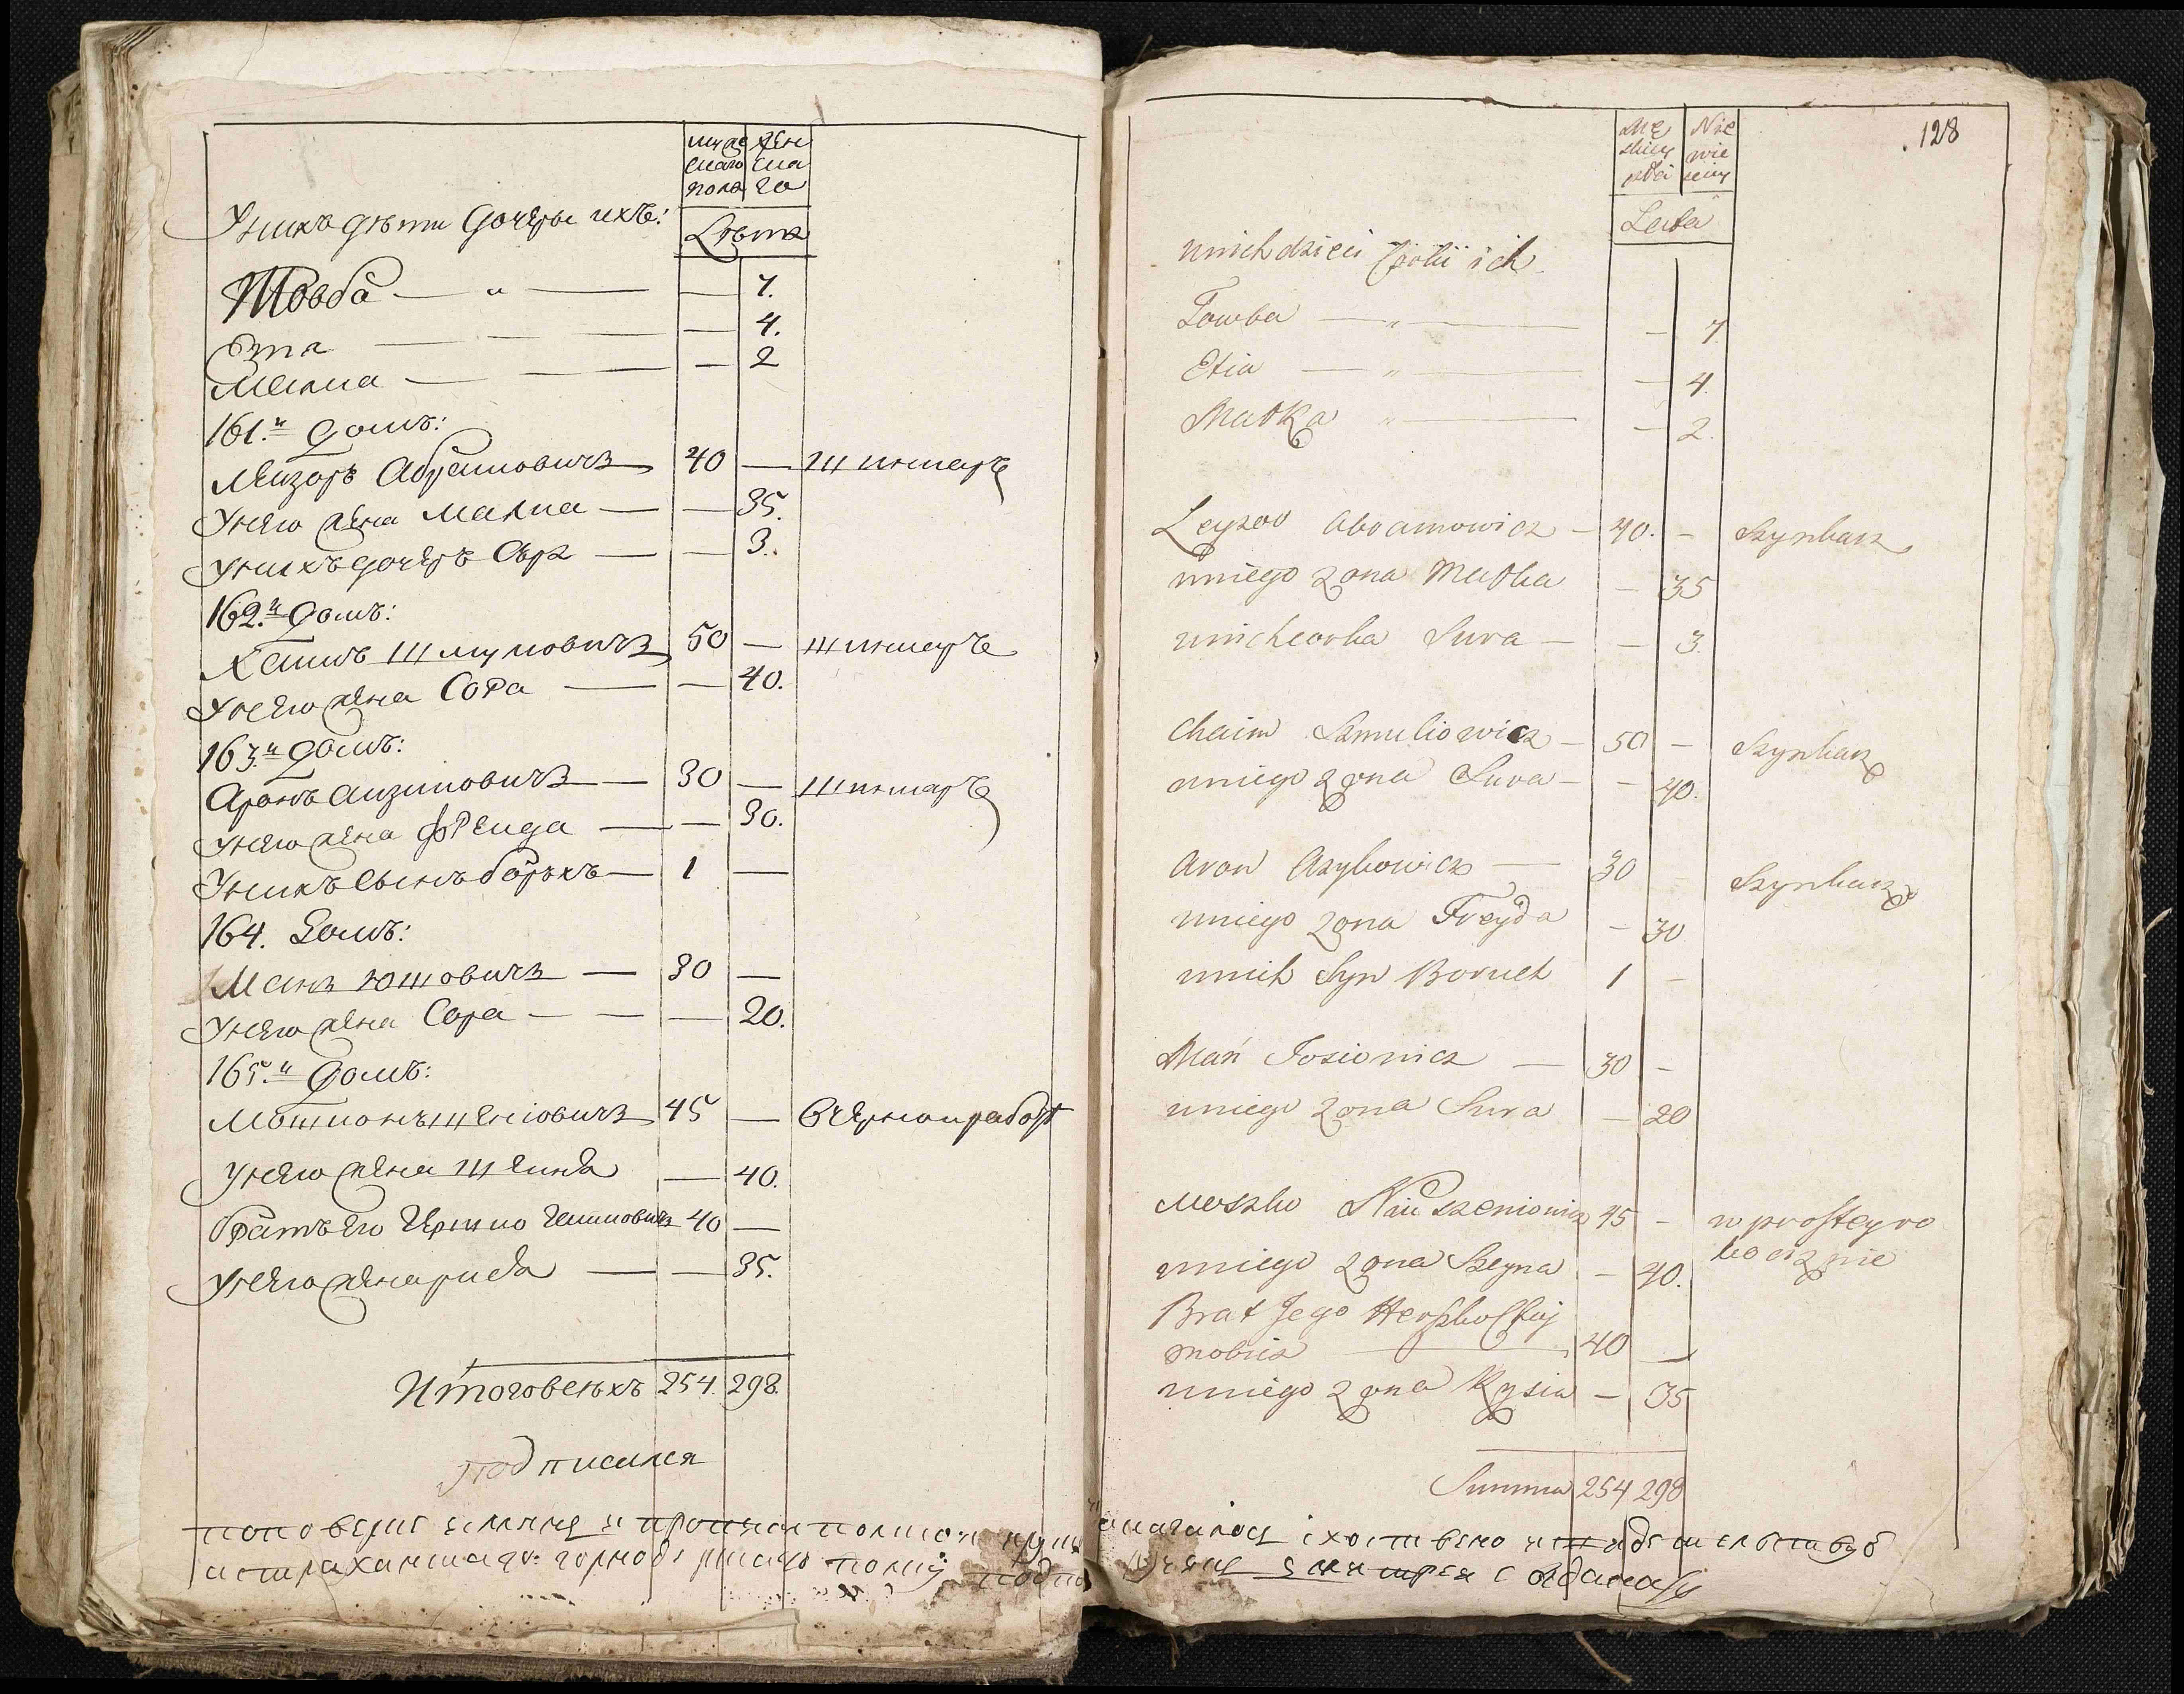 мужескаго пола женскаго
Лѣта
У нихъ дѣти дочеры ихъ:
Товба — „ — — 7.
Эта — — — 4.
Малка — — — 2
161.й домъ:
Лейзоръ Абрамовичъ 40 — шинкаръ
У него жена Малка — — 35.
У нихъ дочеръ Сора — — 3.
162.й домъ:
Хаимъ Шмулиовичъ 50 — шинкаръ
У него жена Сора — — 40.
163.й домъ:
Аронъ Аизиковичъ — 30 — шинкаръ
У него жена Фреида — — 30.
У нихъ сынъ борухъ — 1 —
164. Домъ:
Манъ Юшовичъ — 30 —
У него жена Сора — — — 20.
165.й домъ:
45 — в черной работ
У него жена Шеина — 40.
братъ его Гершко 40 —
У него жена риса — — 35.
Итого всехъ 254. 298.
подписался
128
Męskiey płci Niewieściey
Leta
u nich dzieci Córki ich
Towba — „ — — 7.
Etia — „ — — 4.
Małka „ — — 2.
Leyzor Abramowicz — 40. — Szynkarz
u niego żona Małka — 35
u nich córka Sura — — 3.
Chaim Szmuliowicz — 50 — Szynkarz
u niego żona Sura — — 40.
Aron Azykowicz — 30 — Szynkarz
u niego żona Freyda — 30
u nich Syn Boruch 1 —
Mań Josiowicz — 30 —
u niego żona Sura — 20
Moszko 45 — w prostey ro
boci znie
u niego żona Szeyna — 40.
Brat Jego Herszko
40 —
u niego żona Rysia — 35
Summa 254 298